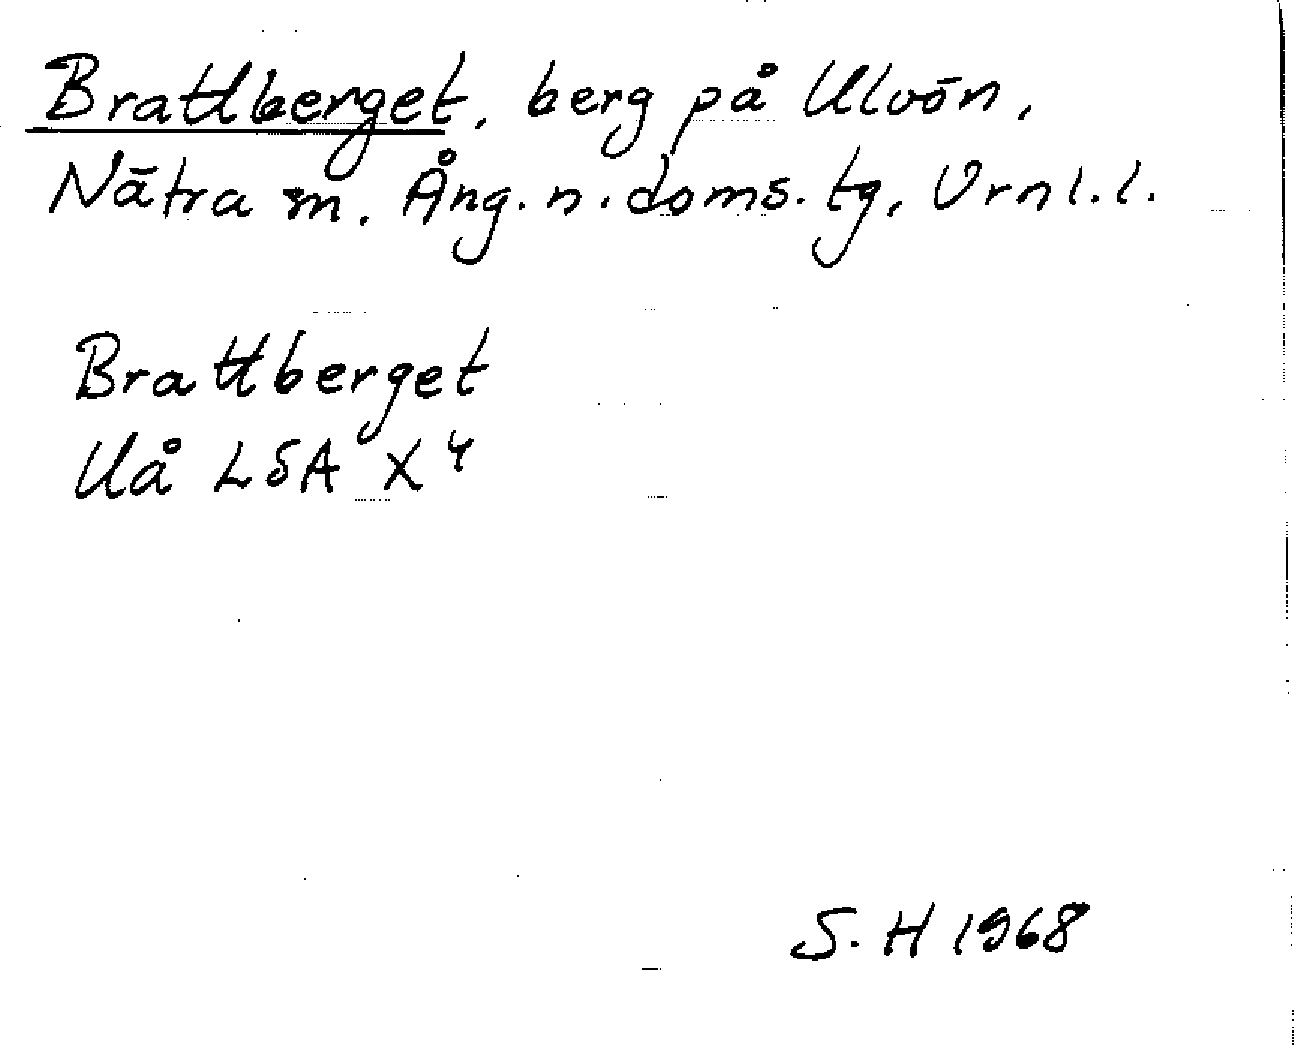 Brattberget, berg på Ulvön,
Nätra sn. Ång. n. doms. tg, Vrnl. l.
Brattberget
Uå LSA X 4
S. H 1968